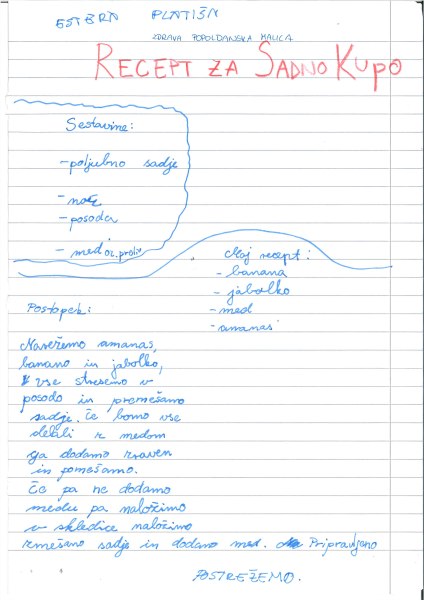 ESTERA PLATIŠA
ZDRAVA POPOLDANSKA MALICA
RECEPT ZA SADNO KUPO
Sestavine:
- poljubno sadje
- nož
- posoda
- med oz.
Moj recept:
- banana
- jabolko
- med
- ananas
Postopek:
Narežemo ananas,
banano in jabolko,
vse stresemo v
posodo in premešamo
sadje. Če bomo vse
delali z medom
ga dodamo zraven
in pomešamo.
Če pa ne dodamo
medu pa naložimo
v skledice naložimo
zmešano sadje in dodamo med. Pripravljeno
POSTREŽEMO.